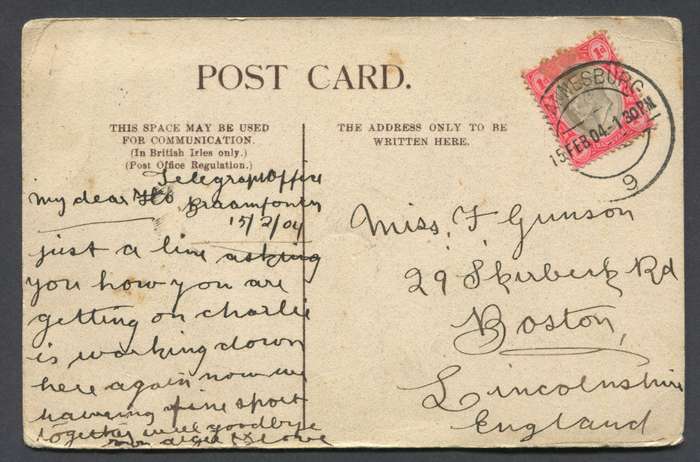 POST CARD.
THIS SPACE MAY BE USED
FOR COMMUNICATION.
(In British Irles only.)
(Post Office Regulation.)
Telegraph Office
Braamfontein
15/2/04
my dear Flo
just a line asking
you how you are
getting on charlie
is working down
here again now we
haveing fine sport
together well goodbye
THE ADDRESS ONLY TO BE
WRITTEN HERE.
Miss, F Gunson
29 Skirbeck Rd
Boston,
Lincolnshire
England
NNESBURG
15 FEB 04 - 1 30PM
9
1d